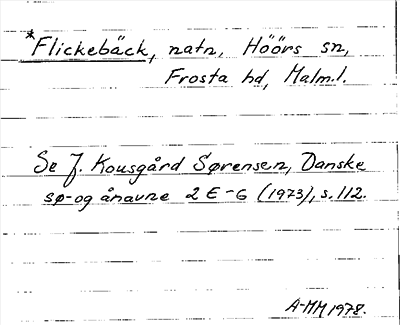 *Flickebäck, natn, Höörs sn,
Frosta hd, Malm.l.
Se J. Kousgård Sørensen, Danske
sø-og ånavne 2 E-G (1973), s.112.
A-MM 1978.